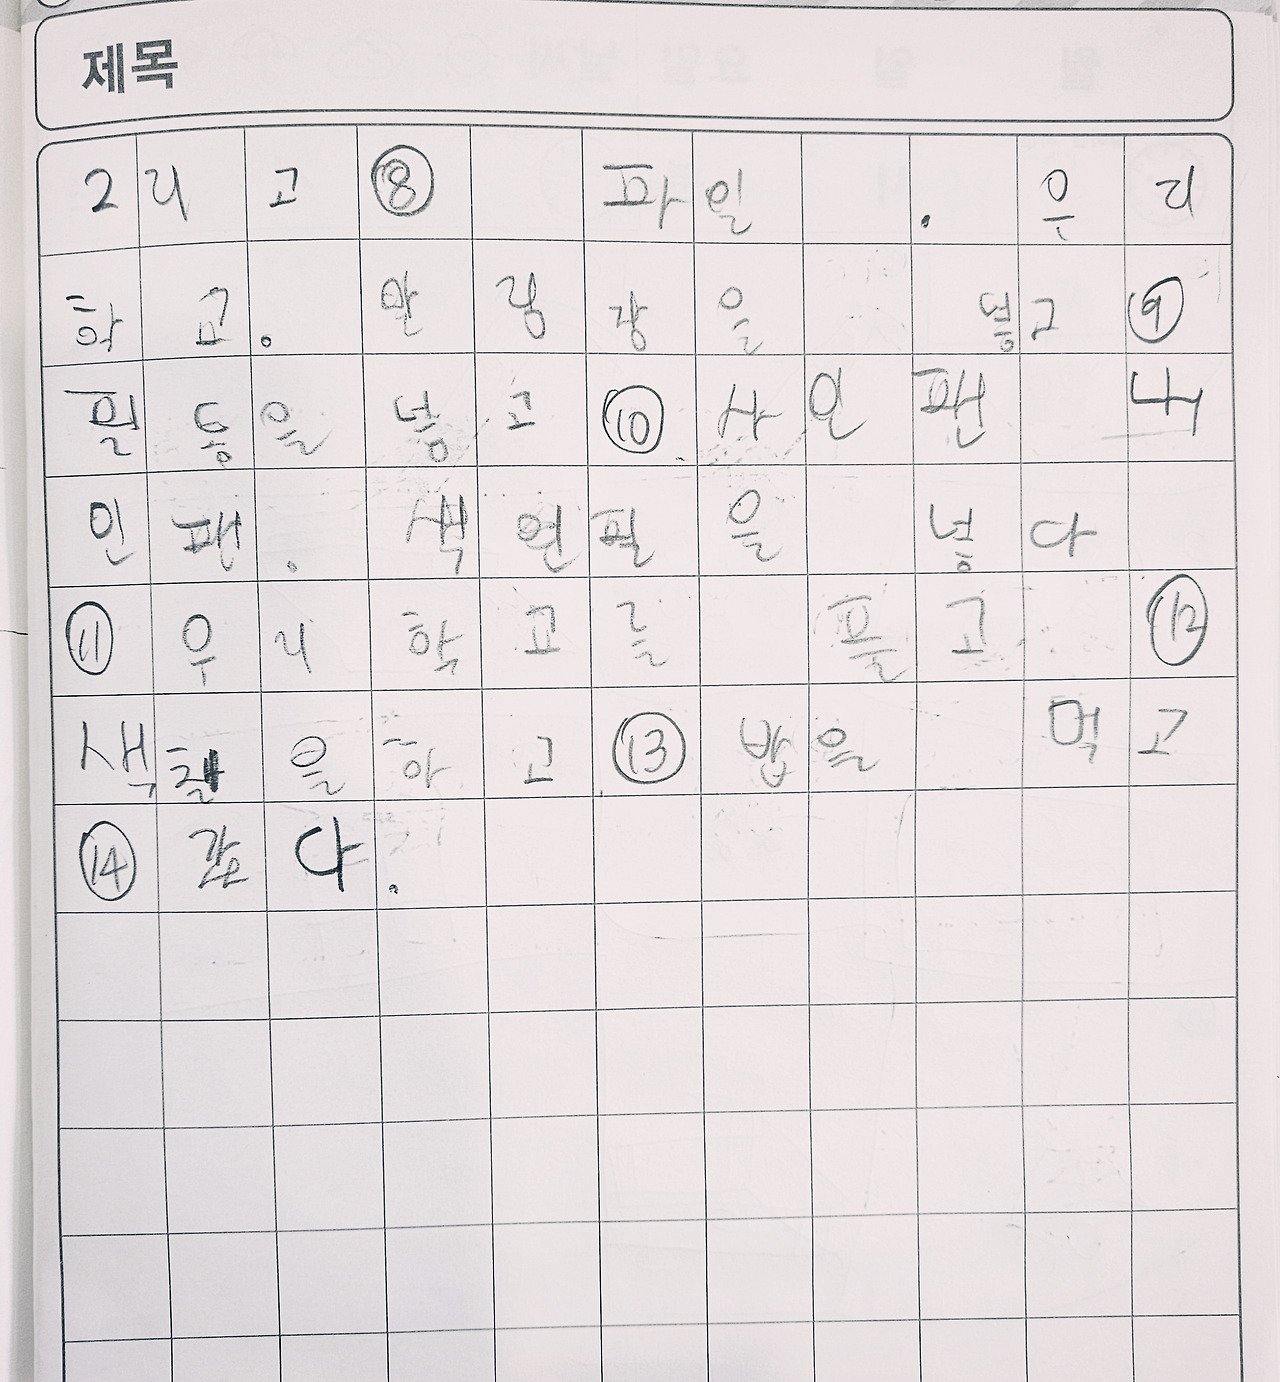 제목
그리고 ⑧ 파일 . 우리
학교. 알림장을 넣고 ⑨
필통을 넣고 ⑩ 사인팬 
인팬. 색연필을 넣다
⑪ 우리 학교를 풀고 ⑫
색칠을하고 ⑬ 밥을 먹고
⑭ 다.